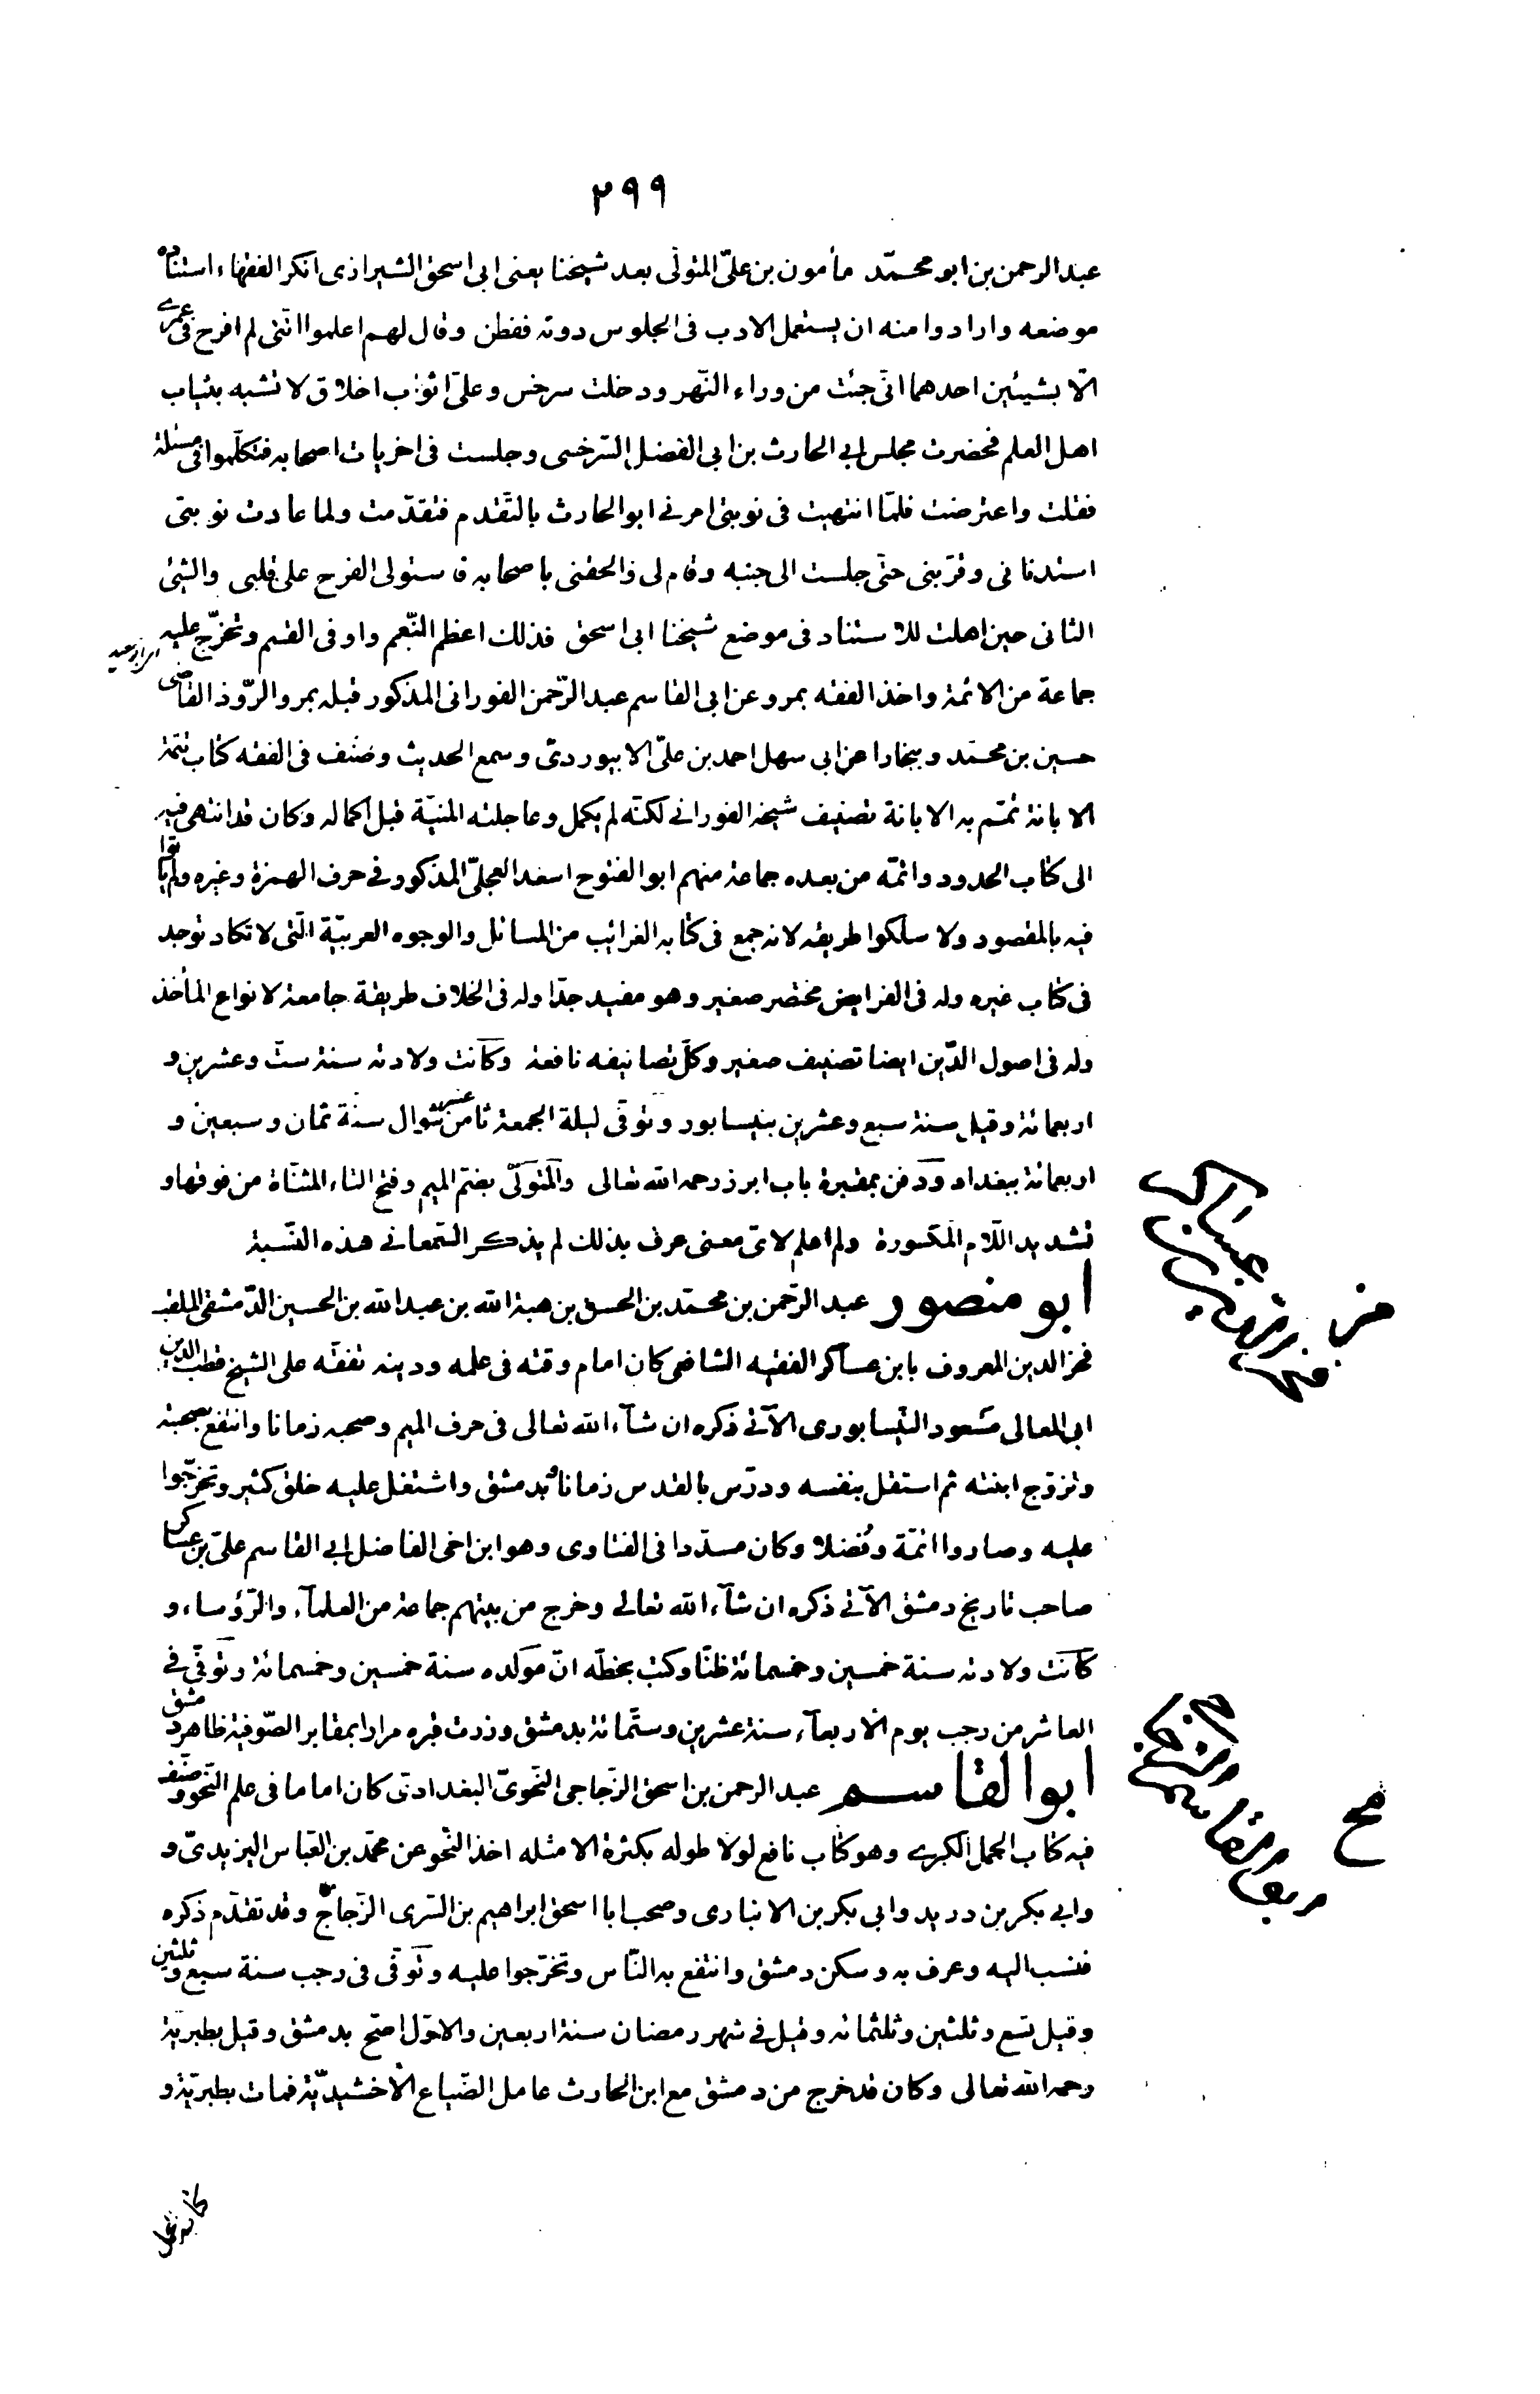 ٢٩٩
عبد الرحمن بن ابو محمّد مأمون بن علىّ المتولّى بعد شيخنا يعنى ابى اسحق الشيرازى انكر الفقهاء استناده
موضعه وارادوا منه ان يستعمل الادب فى الجلوس دونه ففطن وقال لهم اعلموا اننى لم افرح فى عمرى
الّا بشيئين احدهما انى جئت من وراء النّهر ودخلت سرخس وعلىّ اثواب اخلاق لا تشبه بثياب
اهل العلم فحضرت مجلس ابى الحارث بن ابى الفضل السّرخسى وجلست فى اخريات اصحابه فتكلّموا فى مسئلة
فقلت واعترضت فلمّا انتهيت فى نوبتى امرنى ابو الحارث بالتّقدم فتقدّمت ولما عادت نوبتى
استدنانى وقرّبنى حتّى جلست الى جنبه وقام لى والحقنى باصحابه فاستولى الفرح على قلبى والشئ
الثانى حين اهلت للاستناد فى موضع شيخنا ابى اسحق فذلك اعظم النّعم واوفى القسم وتخرّج عليه
جماعة من الائمة واخذ الفقه بمرو عن ابى القاسم عبد الرّحمن الفورانى المذكور قبله بمرو الرّوذ القاضى
حسين بن محمّد وببخارا عن ابى سهل احمد بن علىّ الابيوردىّ وسمع الحديث وصنّف فى الفقه كتاب تتمّة
الابانة تمّم به الابانة تصنيف شيخه الفورانى لكنّه لم يكمل وعاجلته المنيّة قبل اكماله وكان قد انتهى فيه
الى كتاب الحدود واتمّه من بعده جماعة منهم ابو الفتوح اسعد العجلىّ المذكور فى حرف الهمزة وغيره ولم يأتوا
فيه بالمقصود ولا سلكوا طريقه لانه جمع فى كتابه الغرائب من المسائل والوجوه الغريبّة الّتى لا تكاد توجد
فى كتاب غيره وله فى الفرايض مختصر صغير وهو مفيد جدّا وله فى الخلاف طريقة جامعة لانواع المأخذ
وله فى اصول الدّين ايضا تصنيف صغير وكلّ تصانيفه نافعة وكانت ولادته سنة ستّ وعشرين و
اربعمائة وقيل سنة سبع وعشرين بنيسابور وتوفّى ليلة الجمعة ثامن عشر شوال سنة ثمان وسبعين و
اربعمائة ببغداد ودفن بمقبرة باب ابرز رحمه الله تعالى والمتولّى بضمّ الميم وفتح التاء المثنّاة من فوقها و
تشديد اللّام المكسورة ولم اعلم لاىّ معنى عرف بذلك لم يذكر السّمعانى هذه النّسبة
ابو منصور عبد الرّحمن بن محمّد بن الحسن بن هبة الله بن عبد الله بن الحسين الدّمشقى الملقب
فخر الدين المعروف بابن عساكر الفقيه الشافعى كان امام وقته فى علمه ودينه تفقّه على الشيخ قطب الدين
ابى المعالى مسعود النّيسابورى الآتى ذكره ان شآء الله تعالى فى حرف الميم وصحبه زمانا وانتفع بصحبته
وتزوّج ابنته ثم استقل بنفسه ودرّس بالقدس زمانا وبدمشق واشتغل عليه خلق كثير وتخرّجوا
عليه وصاروا ائمّة وفضلا وكان مسدّدا فى الفتاوى وهو ابن اخى الفاضل ابى القاسم علىّ بن عساكر
صاحب تاريخ دمشق الآتى ذكره ان شآء الله تعالى وخرج من بيتهم جماعة من العلمآء والرّؤساء و
كانت ولادته سنة خمسين وخمسمائة ظنّا وكتب بخطّه انّ مولده سنة خمسين وخمسمائة وتوفّى فى
العاشر من رجب يوم الاربعآء سنة عشرين وستّمائة بدمشق وزرت قبره مرارا بمقابر الصّوفية ظاهر دمشق
ابو القاسم عبد الرحمن بن اسحق الزّجاجى النّحوىّ البغدادىّ كان اماما فى علم النّحو وصنّف
فيه كتاب الجمل الكبرى وهو كتاب نافع لولا طوله بكثرة الامثله اخذ النّحو عن محمّد بن العبّاس اليزيدىّ و
وابى بكر بن دريد وابى بكر بن الانبارى وصحب ابا اسحق ابراهيم بن السّرى الزّجاج وقد تقدّم ذكره
فنسب اليه وعرف به وسكن دمشق وانتفع به النّاس وتخرّجوا عليه وتوفّى فى رجب سنة سبع وثلثين
وقيل تسع وثلثين وثلثمائه وقيل فى شهر رمضان سنة اربعين والاوّل اصحّ بدمشق وقيل بطبريّة
رحمه الله تعالى وكان قد خرج من دمشق مع ابن الحارث عامل الضّياع الاخشيديّة فمات بطبريّة و